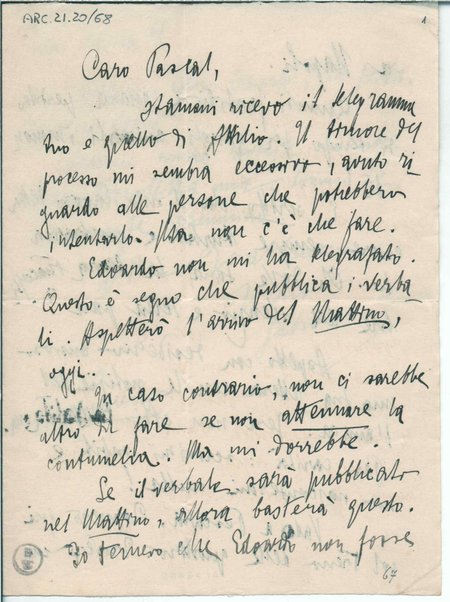 ARC.21.20/68
1
Caro Pascal,
stamani ricevo il telegramma
tuo e quello di Attilio. Il timore del
processo mi sembra eccessivo, avuto ri
guardo alle persone che potrebbero
intentarlo. Ma non c'è che fare.
Edoardo non mi ha telegrafato.
Questo è segno che pubblica i verba
li. Aspetterò l'arrivo del Mattino,
oggi.
In caso contrario, non ci sarebbe
altro da fare se non attenuare la
contumelia. Ma mi dorrebbe.
Se il verbale sarà pubblicato
nel Mattino, allora basterà questo.
Io temevo che Edoardo non fosse
67